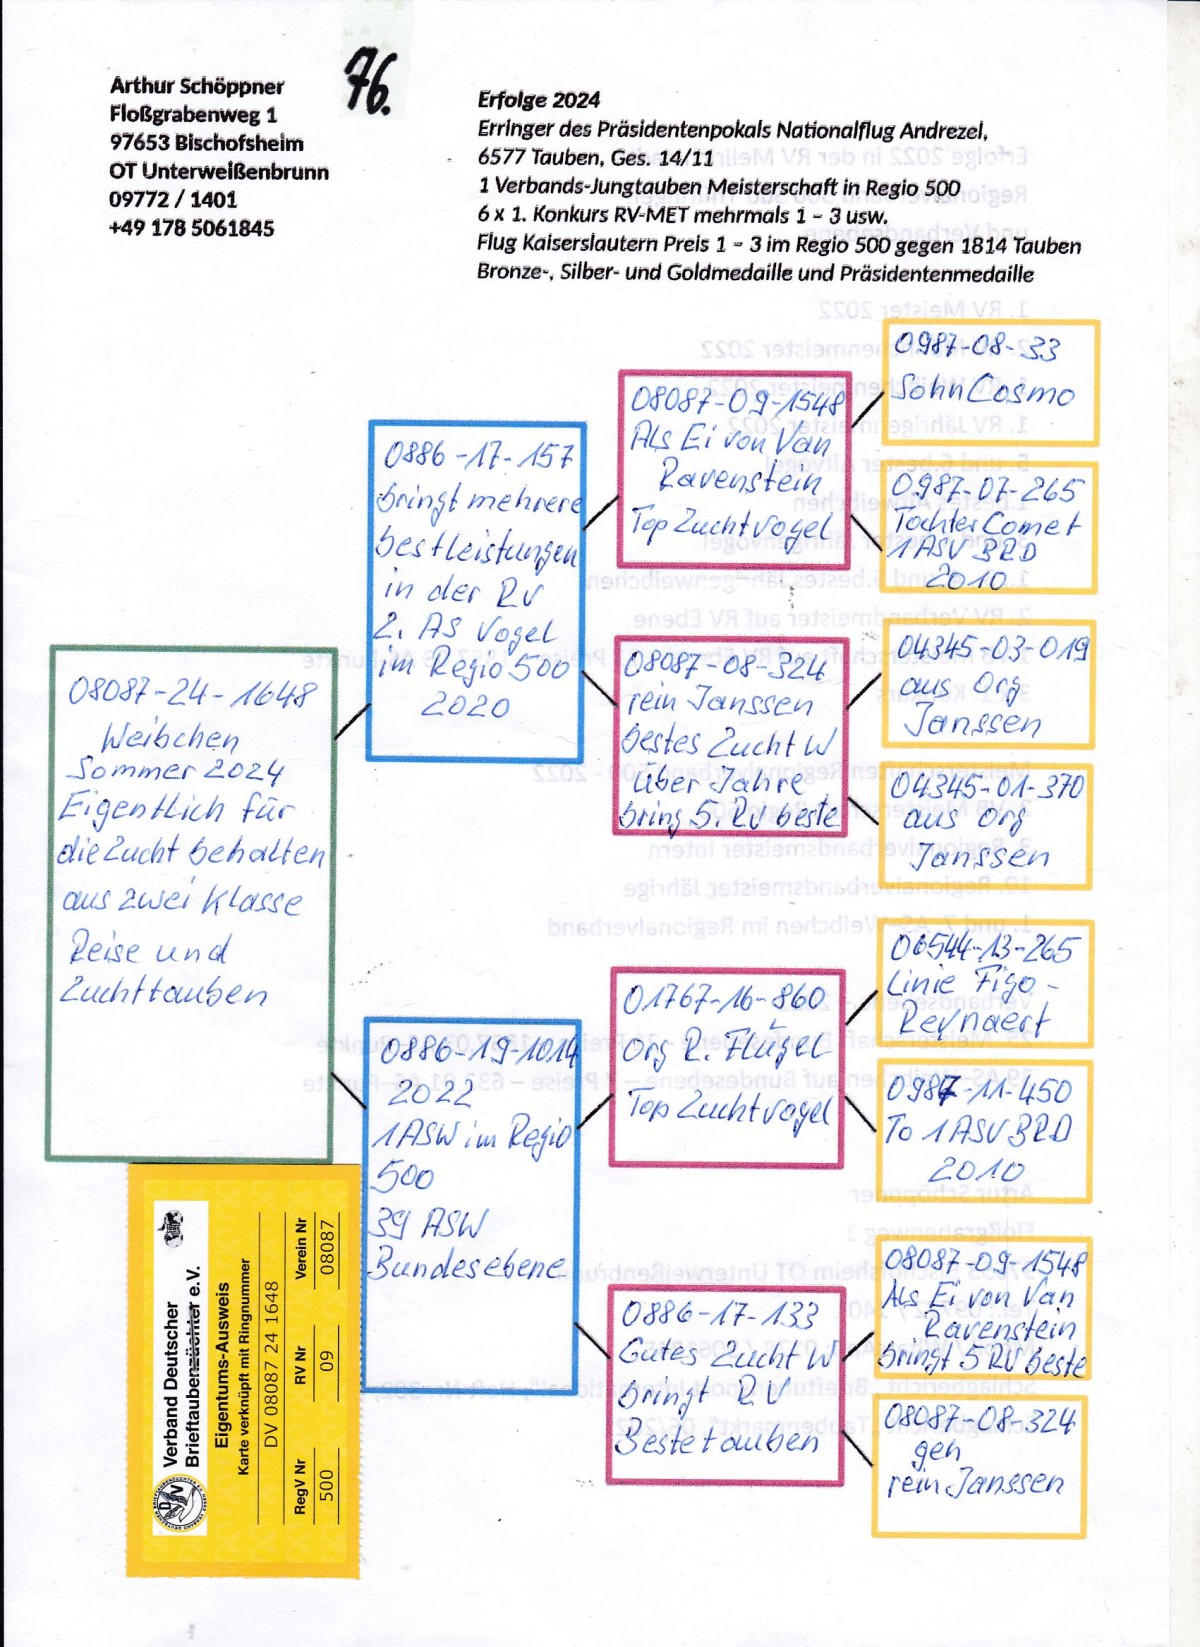 76.
Arthur Schöppner
Floßgrabenweg 1
97653 Bischofsheim
OT Unterweißenbrunn
09772 / 1401
+49 178 5061845
Erfolge 2024
Erringer des Präsidentenpokals Nationalflug Andrezel,
6577 Tauben, Ges. 14/11
1 Verbands-Jungtauben Meisterschaft in Regio 500
6 x 1. Konkurs RV-MET mehrmals 1 – 3 usw.
Flug Kaiserslautern Preis 1 – 3 im Regio 500 gegen 1814 Tauben
Bronze-, Silber- und Goldmedaille und Präsidentenmedaille
08087-24-1648
Weibchen
Sommer 2024
Eigentlich für
die Zucht behalten
aus zwei Klasse
Reise und
Zuchttauben
0886-17-157
bringt mehrere
bestleistungen
in der RV
2. AS Vogel
im Regio 500
2020
0886-19-1014
2022
1 ASW im Regio
500
39 ASW
Bundesebene
08087-09-1548
Als Ei von Van
Ravenstein
Top Zuchtvogel
08087-08-324
rein Janssen
bestes Zucht W
über Jahre
bring 5. RV beste
01767-16-860
Org R. Flügel
Top Zuchtvogel
0886-17-133
Gutes Zucht W
bringt RV
Beste tauben
0987-08-33
Sohn Cosmo
0987-07-265
Tochter Comet
1 ASV BRD
2010
04345-03-019
aus Org
Janssen
04345-01-370
aus Org
Janssen
06544-13-265
Linie Figo -
Reynaert
0987-11-450
To 1 ASV BRD
2010
08087-09-1548
Als Ei von Van
Ravenstein
bringt 5 RV beste
08087-08-324
gen
rein Janssen
Verband Deutscher
Brieftaubenzüchter e.V.
Eigentums-Ausweis
Karte verknüpft mit Ringnummer
DV 08087 24 1648
RegV Nr RV Nr Verein Nr
500 09 08087